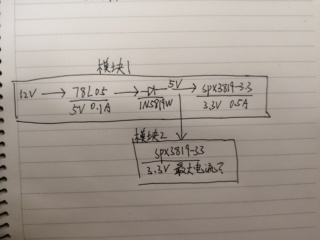 模块1
12V → 78L05 → 1N5819W 5V → SPX3819-33
5V 0.1A 3.3V 0.5A
模块2
SPX3819-33
3.3V 最大电流?